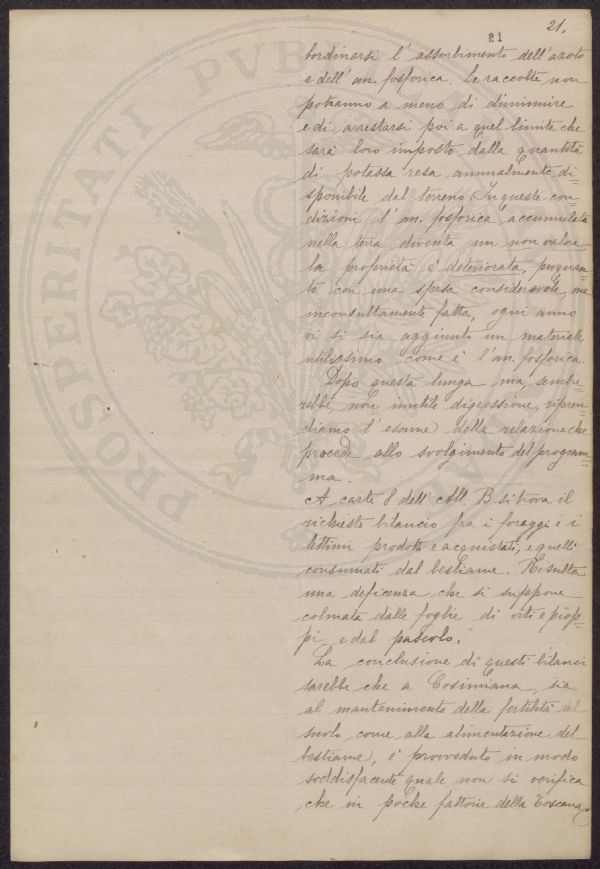 21.
21
bordinarsi l'assorbimento dell'azoto
e dell'an. fosforica. Le raccolte non
potranno a meno di diminuire
e di arrestarsi poi a quel limite che
sarà loro imposto dalla quantità
di potassa resa annualmente di=
sponibile dal terreno. In queste con=
dizioni l'an. fosforica accumulata
nella terra diventa un non valore
la proprietà è deteriorata, perquan=
to con una spesa considerevole, ma
inconsultamente fatta, ogni anno
vi si sia aggiunto un materiale
utilissimo come è l'an. fosforica.
Dopo questa lunga ma, sembre=
rebbe, non inutile digressione, ripren=
diamo l'esame della relazione che
precede allo svolgimento del program=
ma.
A carte 8 dell'All. B si trova il
richiesto bilancio fra i foraggi e i
lettimi prodotti e acquistati, e quelli
consumati dal bestiame. Risulta
una deficenza che si suppone
colmata dalle foglie di viti e piop=
pi, e dal pascolo.
La conclusione di questi bilanci
sarebbe che a Cosimiana, sia
al mantenimento della fertilità del
suolo come alla alimentazione del
bestiame, è provveduto in modo
soddisfacente quale non si verifica
che in poche fattorie della Toscana.
PROSPERITATI PVBLI